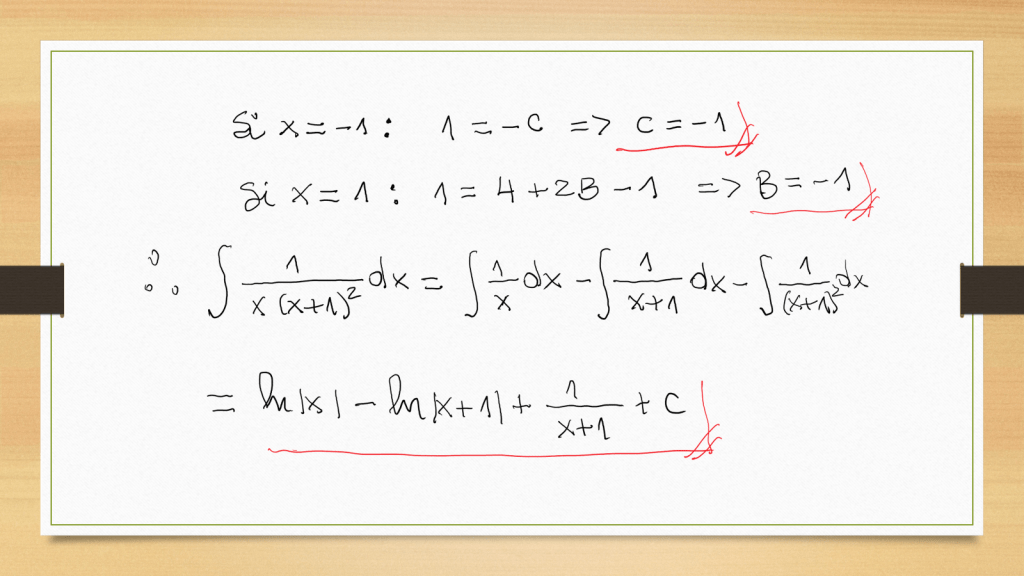 Si x = -1 : 1 = -C => C = -1
Si x = 1 : 1 = 4 + 2B - 1 => B = -1
∴ ∫ 1/(x (x+1)²) dx = ∫ 1/x dx - ∫ 1/(x+1) dx - ∫ 1/(x+1)² dx
= ln|x| - ln|x+1| + 1/(x+1) + C